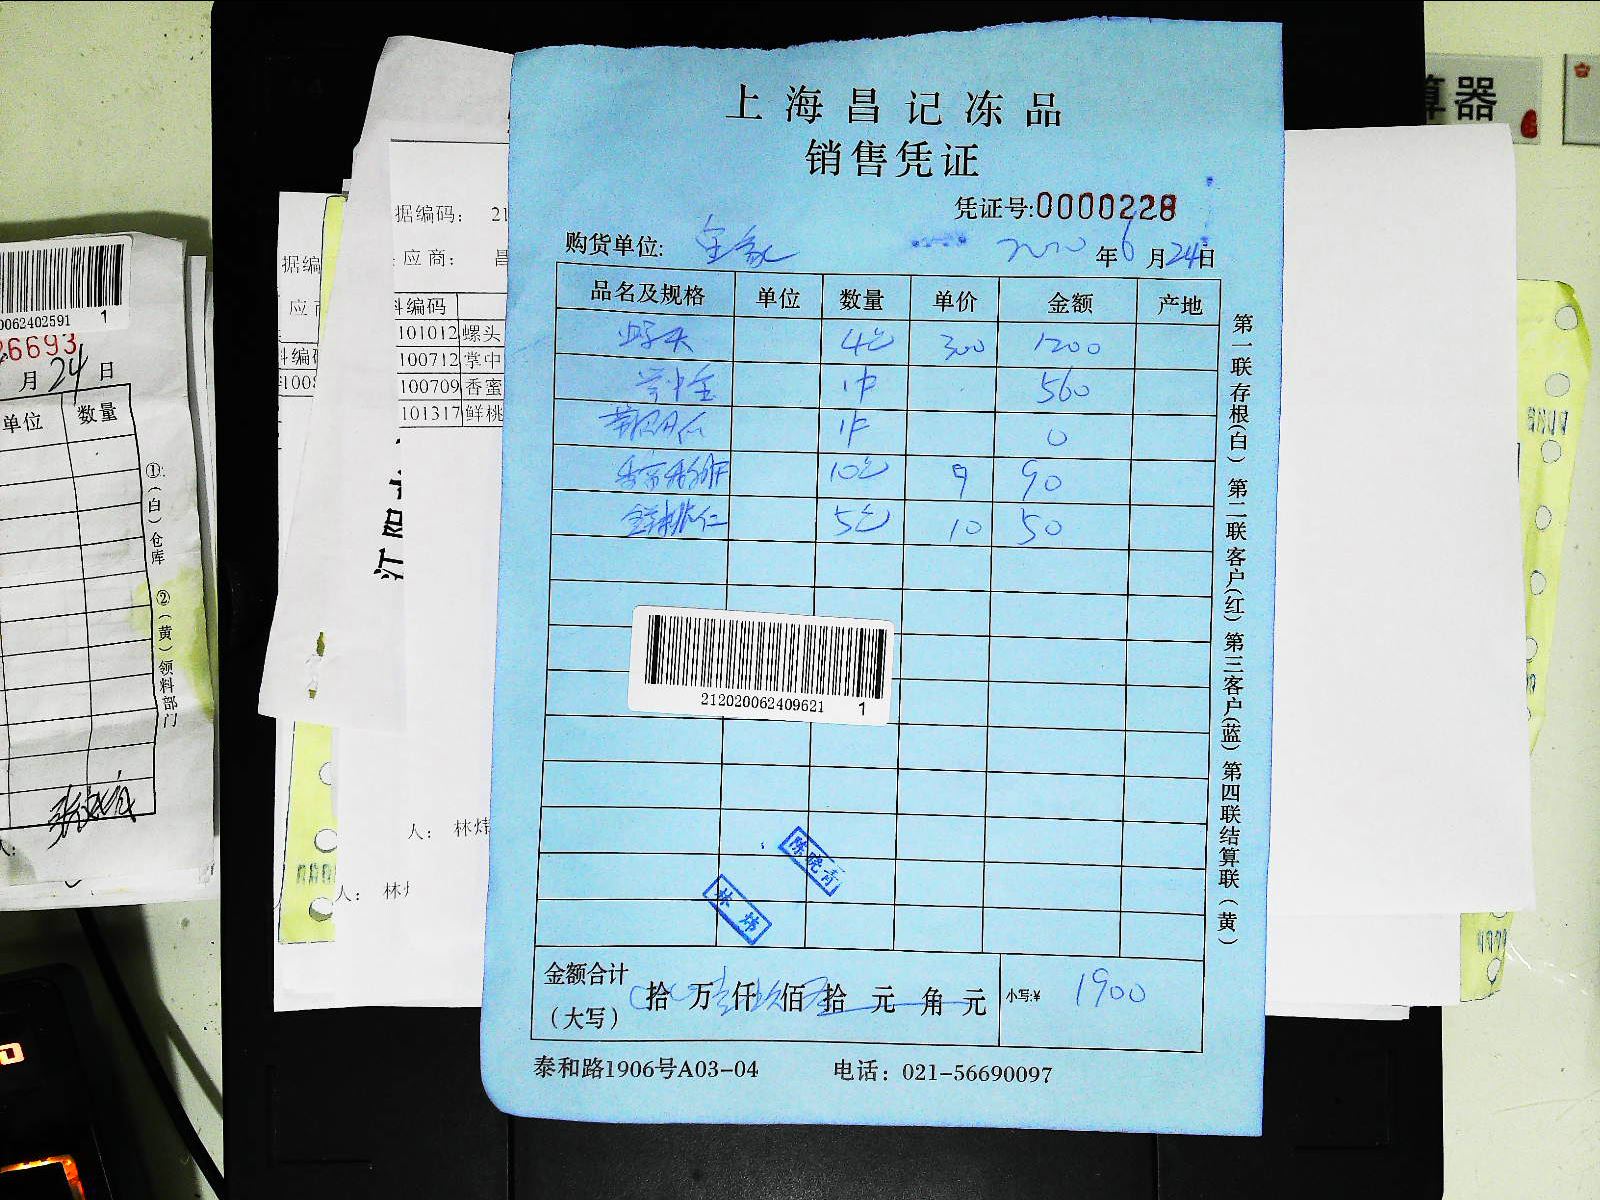 算器
上海昌记冻品
销售凭证
凭证号:0000228
购货单位: 全家
2020年6月24日
品名及规格 单位 数量 单价 金额 产地
螺头 4包 300 1200
掌中宝 1件 560
1件 0
10包 9 90
鲜桃仁 5包 10 50
212020062409621 1
陈晓青
林炜
金额合计
(大写)
拾 万壹仟玖佰零拾 元 角 元
小写:¥ 1900
泰和路1906号A03-04 电话：021-56690097
第一联存根(白) 第二联客户(红) 第三客户(蓝) 第四联结算联(黄)
据编码： 21
应商： 昌
料编码
101012 螺头
100712 掌中
100709 香蜜
101317 鲜桃
人： 林炜
据编
应商
料编
1008
人： 林炜
0062402591 1
26693
月 24 日
单位 数量
①:(白)仓库 ②(黄)领料部门